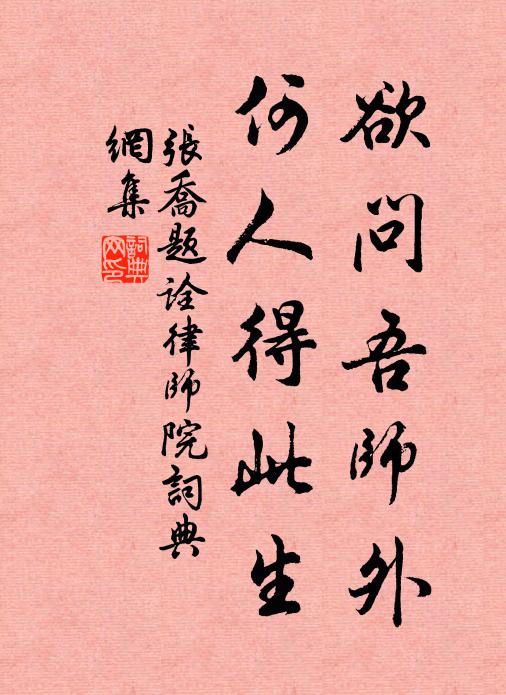 欲问吾師外
何人得此生
張喬題诠律師院詞典
網集
詞典網印